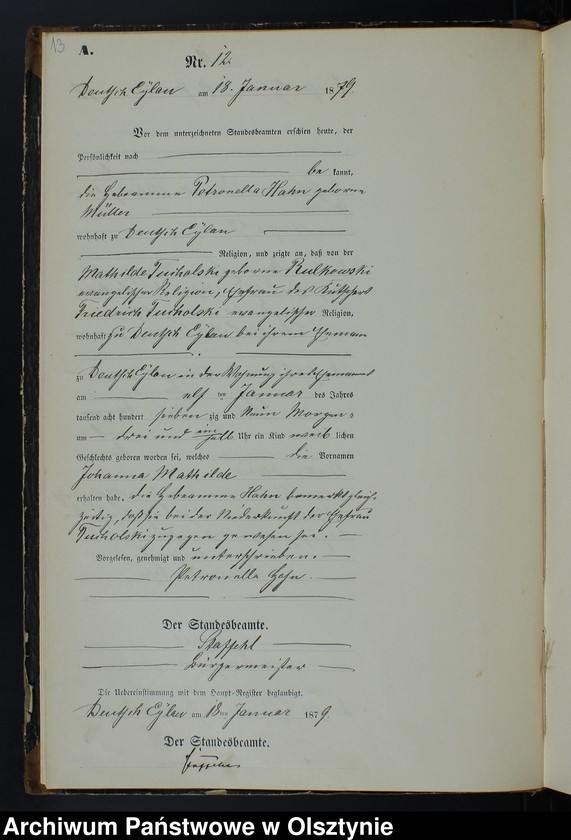 13
A.
Nr. 12.
Deutsch Eylau am 18. Januar 1879.
Vor dem unterzeichneten Standesbeamten erschien heute, der
Persönlichkeit nach
be kannt,
die Hebeamme Petronella Hahn geborne
Müller
wohnhaft zu Deutsch Eylau
Religion, und zeigte an, daß von der
Mathilde Tucholski geborne Rulkowski
evangelischer Religion, Ehefrau des Kutschers
Friedrich Tucholski evangelischer Religion,
wohnhaft zu Deutsch Eylau bei ihrem Ehemann
zu Deutsch Eylau in der Wohnung ihres Ehemannes
am elf ten Januar des Jahres
tausend acht hundert sieben zig und Neun Morgens
um drei und ein halb Uhr ein Kind weib lichen
Geschlechts geboren worden sei, welches die Vornamen
Johanna Mathilde
erhalten habe. Die Hebeamme Hahn bemerkt gleich-
zeitig, daß sie bei der Niederkunft der Ehefrau
Tucholski zugegen gewesen sei.
Vorgelesen, genehmigt und unterschrieben.
Petronella Hahn.
Der Standesbeamte.
Bürgermeister
Die Uebereinstimmung mit dem Haupt-Register beglaubigt.
Deutsch Eylau am 18ten Januar 1879.
Der Standesbeamte.
Archiwum Państwowe w Olsztynie